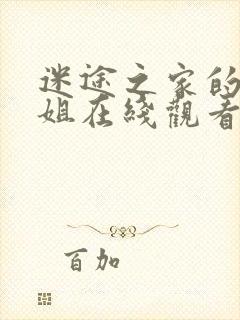 迷途之家的
姐在綫觀看
百加